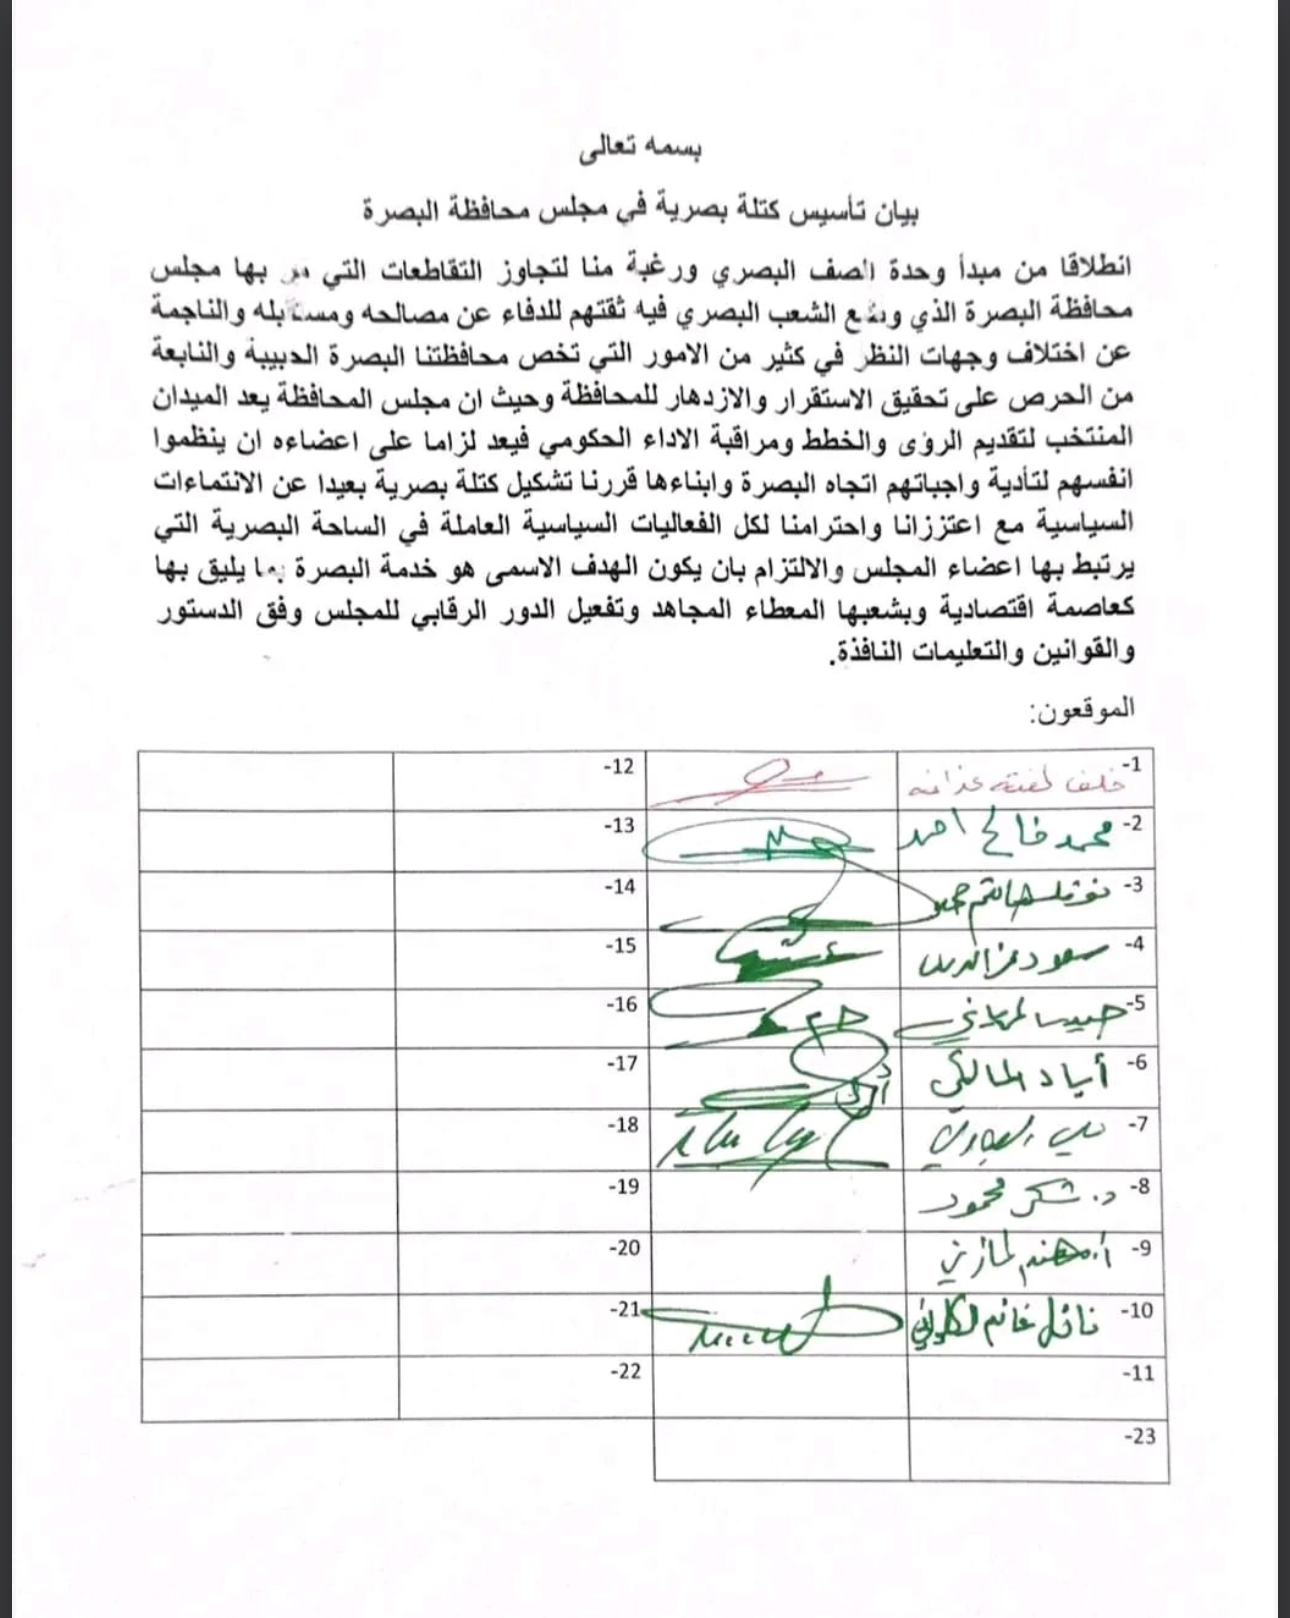 بسمه تعالى
بيان تأسيس كتلة بصرية في مجلس محافظة البصرة
انطلاقا من مبدأ وحدة الصف البصري ورغبة منا لتجاوز التقاطعات التي مر بها مجلس
محافظة البصرة الذي وضع الشعب البصري فيه ثقتهم للدفاع عن مصالحه ومستقبله والناجمة
عن اختلاف وجهات النظر في كثير من الامور التي تخص محافظتنا البصرة الحبيبة والنابعة
من الحرص على تحقيق الاستقرار والازدهار للمحافظة وحيث ان مجلس المحافظة يعد الميدان
المنتخب لتقديم الرؤى والخطط ومراقبة الاداء الحكومي فيعد لزاما على اعضاءه ان ينظموا
انفسهم لتأدية واجباتهم اتجاه البصرة وابناءها قررنا تشكيل كتلة بصرية بعيدا عن الانتماءات
السياسية مع اعتززانا واحترامنا لكل الفعاليات السياسية العاملة في الساحة البصرية التي
يرتبط بها اعضاء المجلس والالتزام بان يكون الهدف الاسمى هو خدمة البصرة بما يليق بها
كعاصمة اقتصادية وبشعبها المعطاء المجاهد وتفعيل الدور الرقابي للمجلس وفق الدستور
والقوانين والتعليمات النافذة.
الموقعون:
1- خلف لفتة 12-
2- محمد فالح احمد 13-
3- نوفل هاشم حميد 14-
4- سعود عزالدين 15-
5- 16-
6- أياد المالكي 17-
7- 18-
8- د. شكر محمود 19-
9- أ. مهند المازني 20-
10- نائل غانم 21-
11- 22-
23-